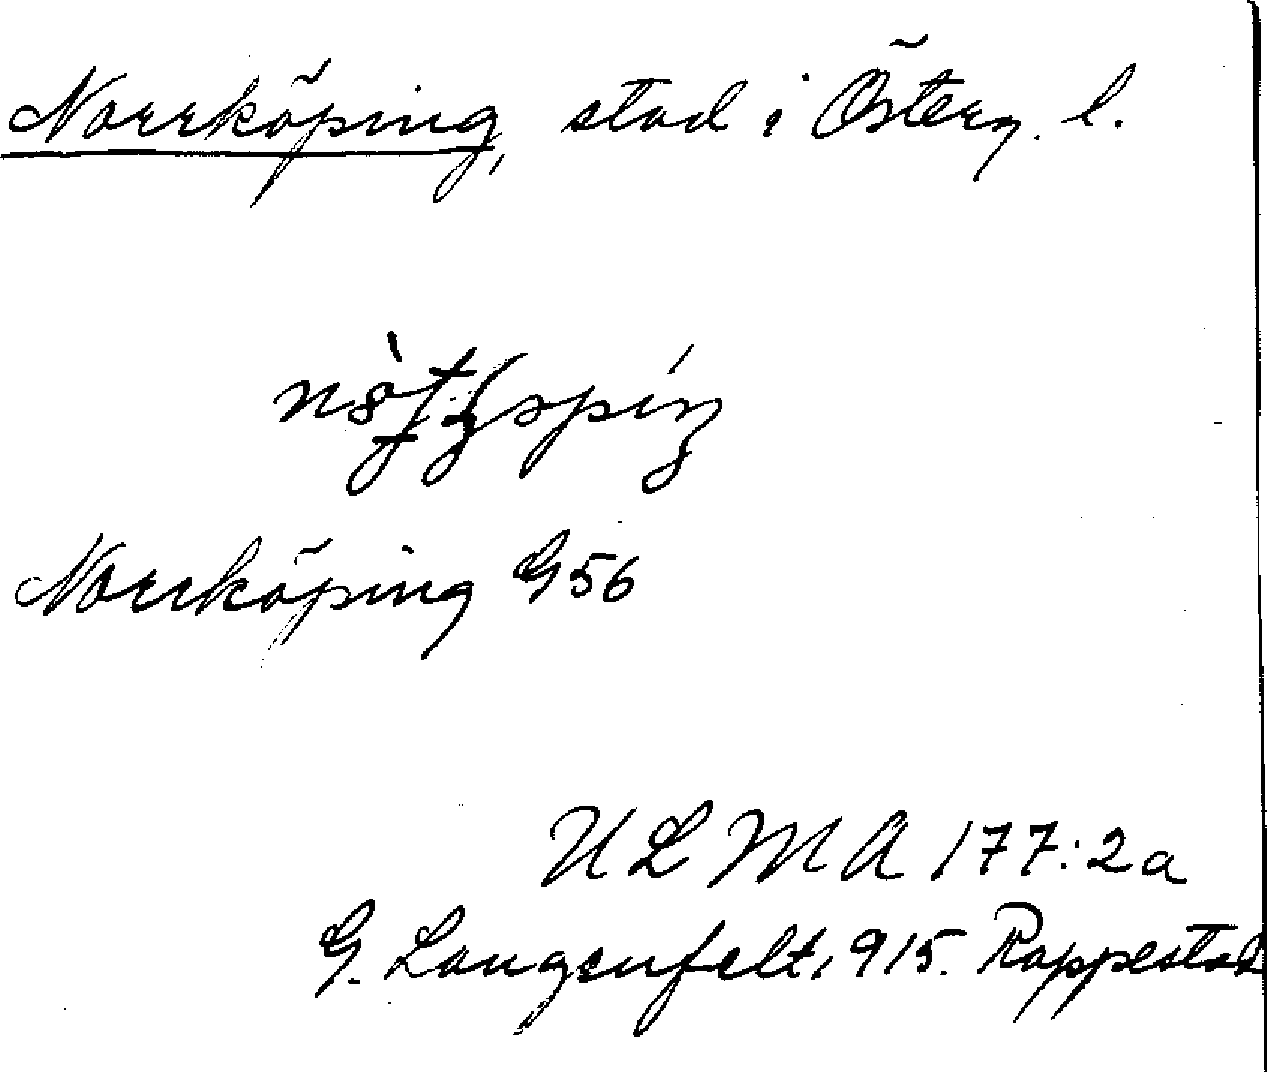 Norrköping, stad i Österg. l.
Norrköping G56
ULMA 177:2a
G. Langenfelt, 915. Rappestad